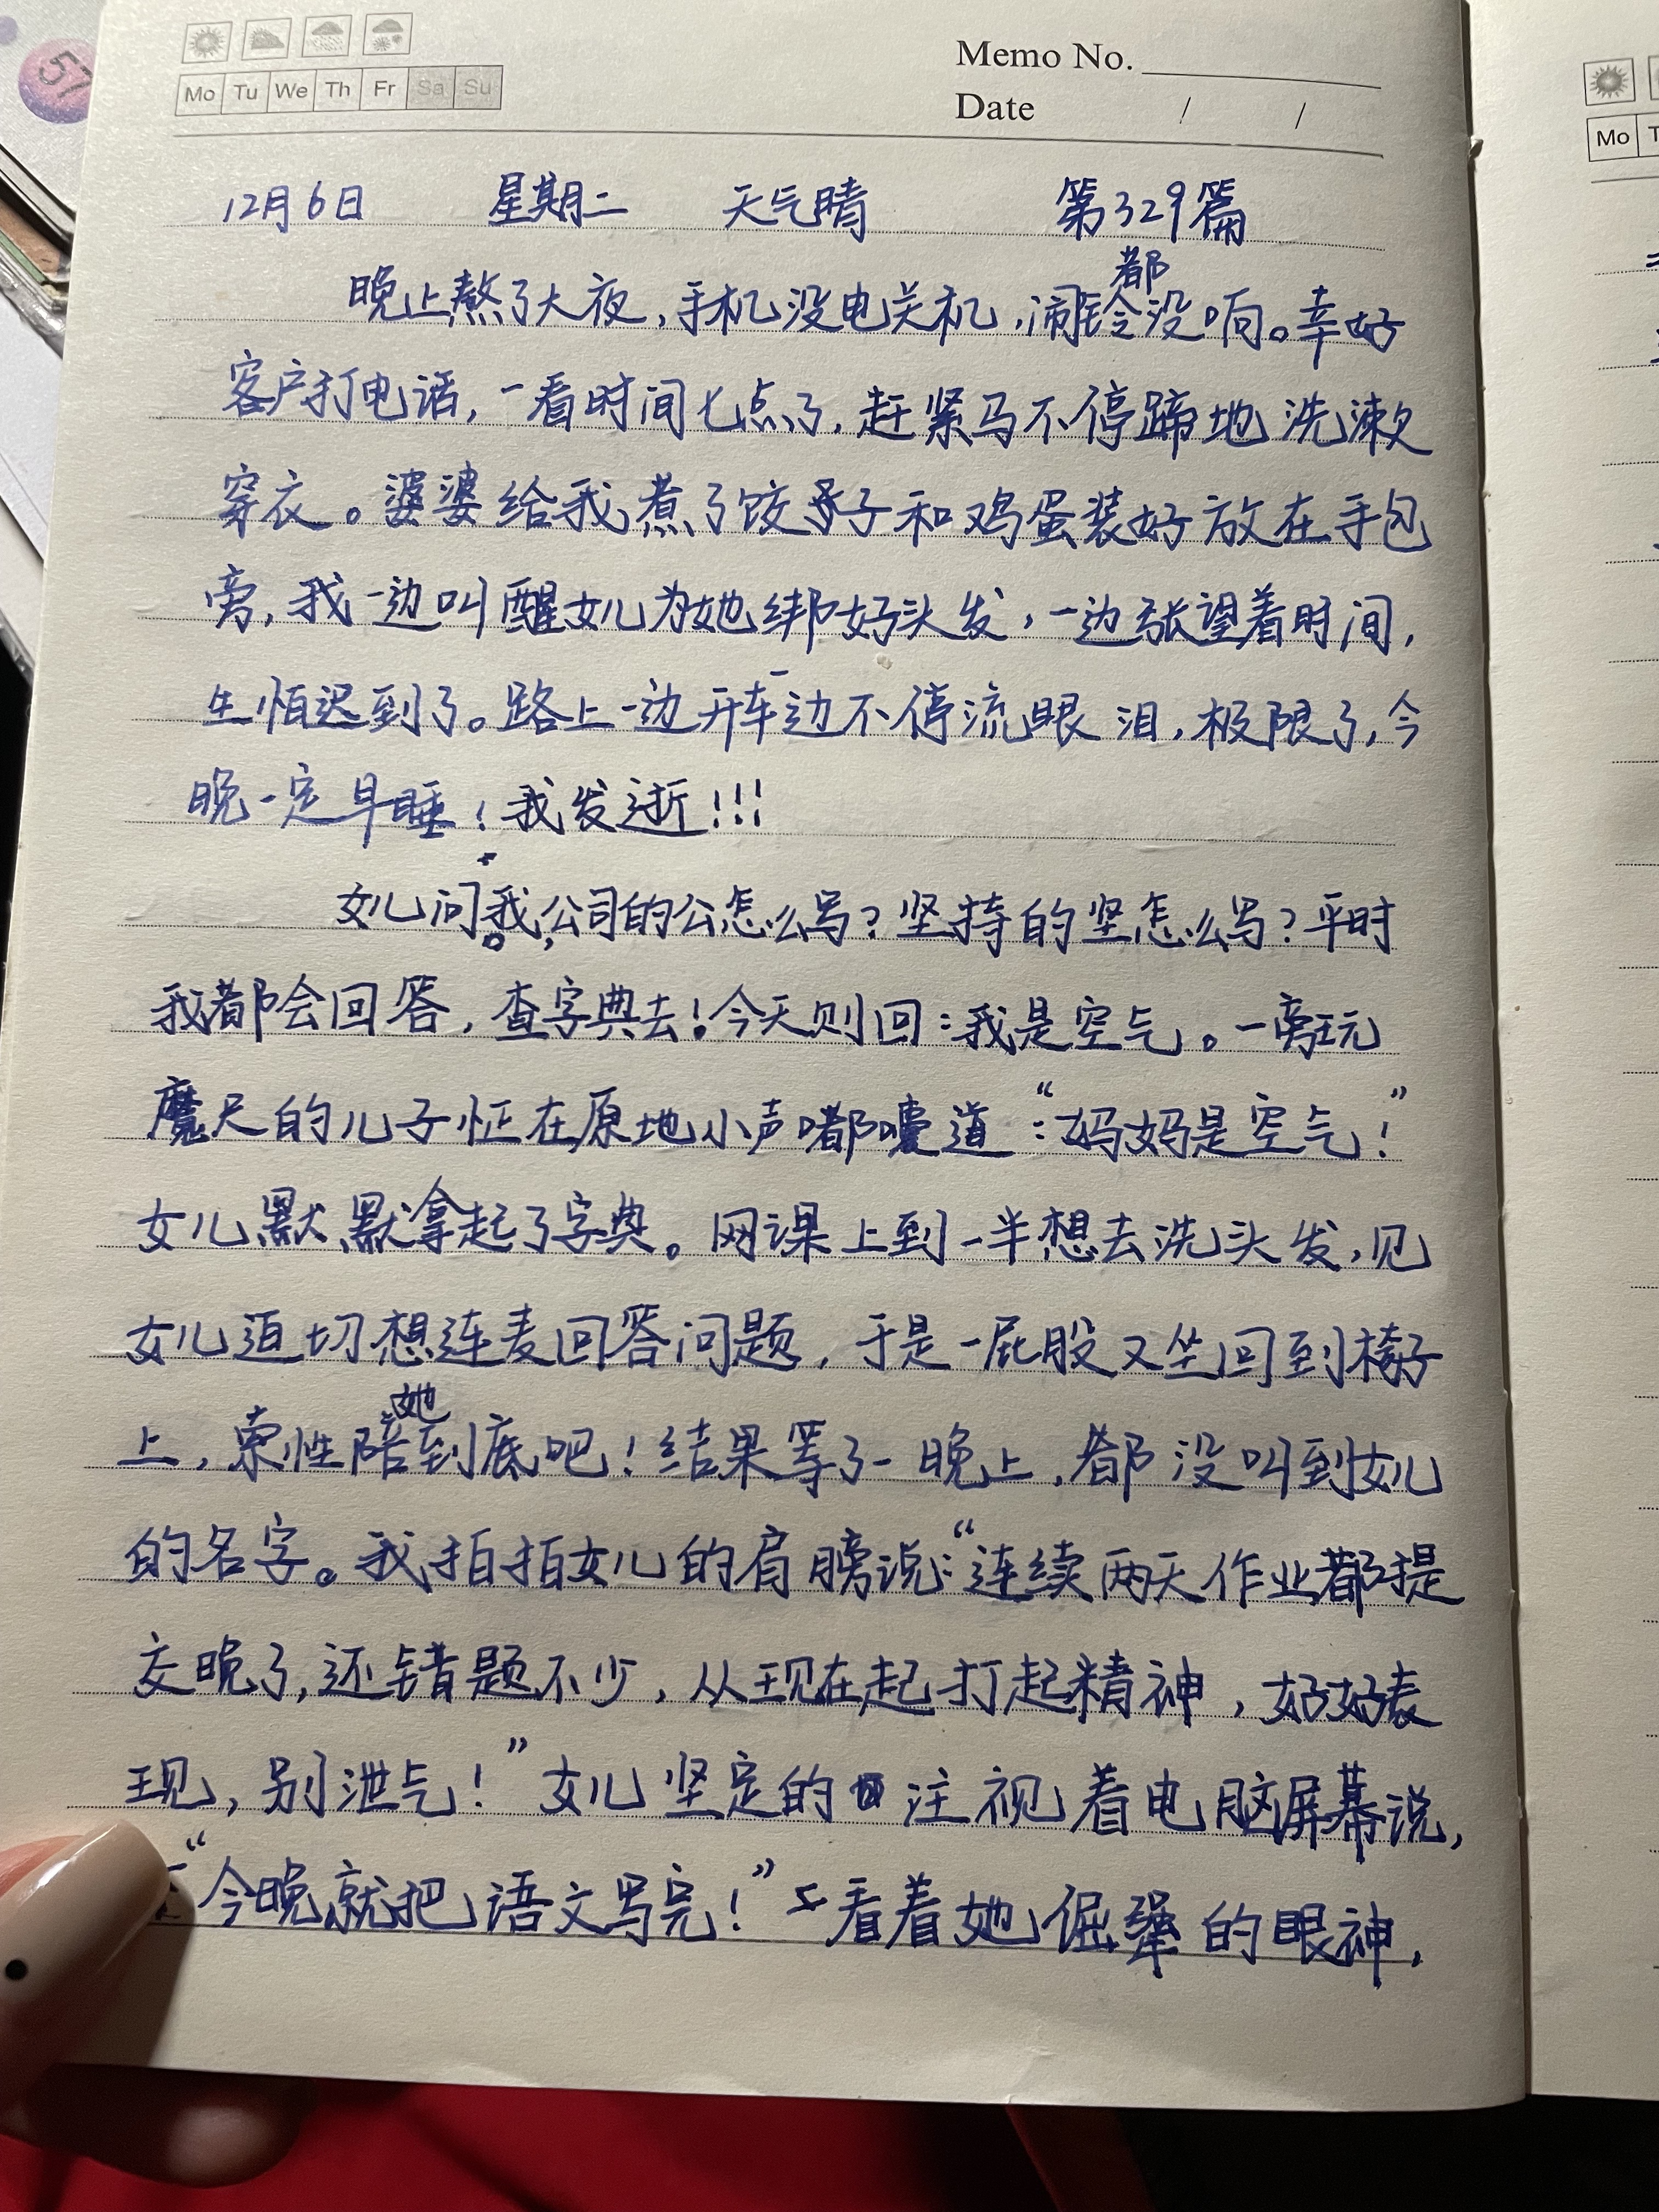 57
Mo Tu We Th Fr Sa Su
Memo No.
Date / /
Mo
12月6日 星期二 天气晴 第329篇
晚上熬了大夜,手机没电关机,闹铃都没响。幸好
客户打电话,一看时间七点了,赶紧马不停蹄地洗漱
穿衣。婆婆给我煮了饺子和鸡蛋装好放在手包
旁,我一边叫醒女儿为她绑好头发,一边张望着时间,
生怕迟到了。路上一边开车一边不停流眼泪,极限了,今
晚一定早睡!我发逝!!!
女儿问我,公司的公怎么写?坚持的坚怎么写?平时
我都会回答,查字典去!今天则回:我是空气。一旁玩
魔尺的儿子怔在原地小声嘟囔道:“妈妈是空气!”
女儿默默拿起了字典。网课上到一半想去洗头发,见
女儿迫切想连麦回答问题,于是一屁股又坐回到椅子
上,索性陪她到底吧!结果等了一晚上,都没叫到女儿
的名字。我拍拍女儿的肩膀说:“连续两天作业都提
交晚了,还错题不少,从现在起打起精神,好好表
现,别泄气!”女儿坚定的注视着电脑屏幕说,
“今晚就把语文写完!”看着她倔犟的眼神,